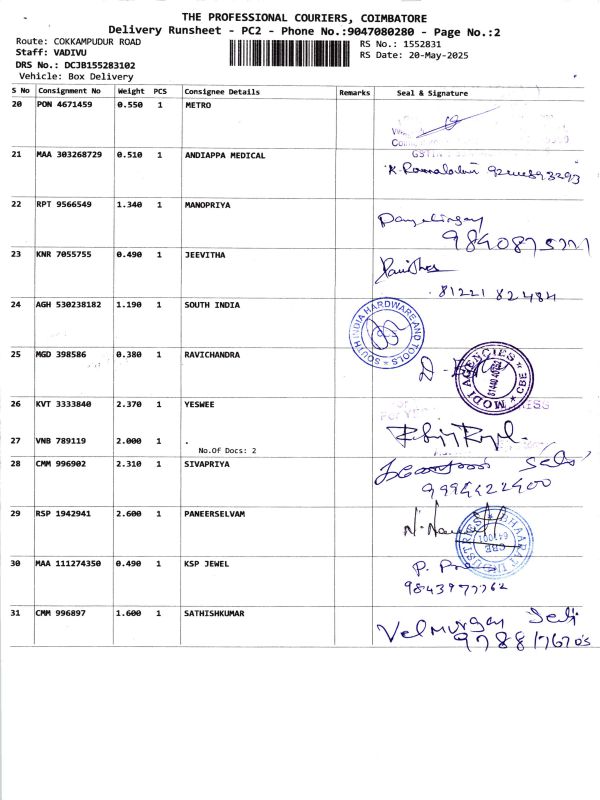 THE PROFESSIONAL COURIERS, COIMBATORE
Delivery Runsheet - PC2 - Phone No.:9047080280 - Page No.:2
Route: COKKAMPUDUR ROAD
RS No.: 1552831
Staff: VADIVU
RS Date: 20-May-2025
DRS No.: DCJB155283102
Vehicle: Box Delivery
S No Consignment No Weight PCS Consignee Details Remarks Seal & Signature
20 PON 4671459 0.550 1 METRO
21 MAA 303268729 0.510 1 ANDIAPPA MEDICAL
GSTIN
22 RPT 9566549 1.340 1 MANOPRIYA
23 KNR 7055755 0.490 1 JEEVITHA
81221 82484
24 AGH 530238182 1.190 1 SOUTH INDIA
SOUTH INDIA HARDWARE AND TOOLS
25 MGD 398586 0.380 1 RAVICHANDRA
MODI AGENCIES * CBE *
26 KVT 3333840 2.370 1 YESWEE
27 VNB 789119 2.000 1 .
No.Of Docs: 2
28 CMM 996902 2.310 1 SIVAPRIYA
9994222400
29 RSP 1942941 2.600 1 PANEERSELVAM
CBE
30 MAA 111274350 0.490 1 KSP JEWEL
P.
9843977762
31 CMM 996897 1.600 1 SATHISHKUMAR
Velmurgan